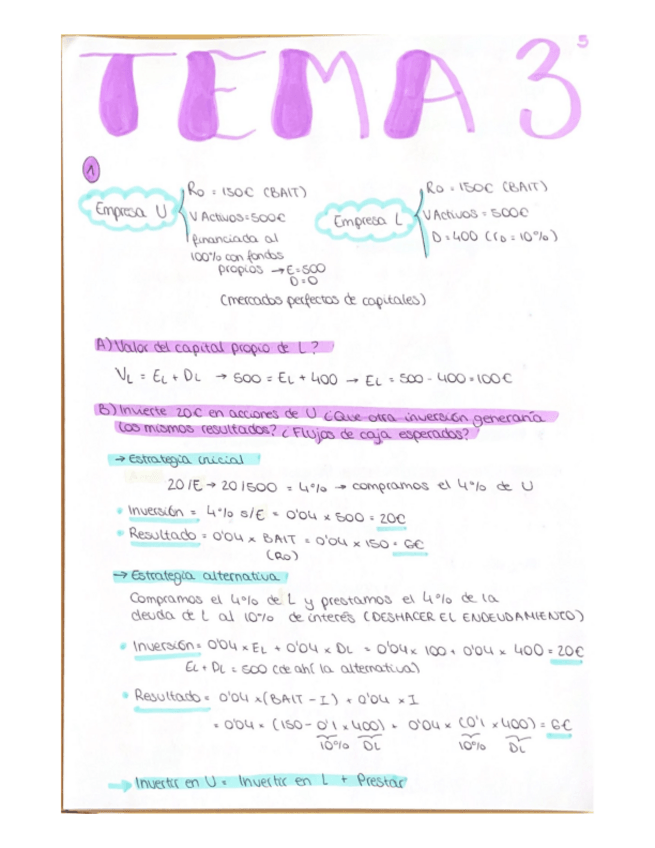 5
TEMA 3
1
Empresa U
Ro = 150€ (BAIT)
V Activos = 500€
financiada al
100% con fondos
propios → E = 500
D = 0
Empresa L
Ro = 150€ (BAIT)
V Activos = 500€
D = 400 (rD = 10%)
(mercados perfectos de capitales)
A) Valor del capital propio de L?
VL = EL + DL → 500 = EL + 400 → EL = 500 - 400 = 100€
B) Invierte 20€ en acciones de U ¿Que otra inversión generaría
los mismos resultados? ¿Flujos de caja esperados?
→ Estrategia inicial
20/E → 20/500 = 4% → compramos el 4% de U
• Inversión = 4% s/E = 0'04 x 500 = 20€
• Resultado = 0'04 x BAIT = 0'04 x 150 = 6€
(Ro)
→ Estrategia alternativa
Compramos el 4% de L y prestamos el 4% de la
deuda de L al 10% de interés (DESHACER EL ENDEUDAMIENTO)
• Inversión = 0'04 x EL + 0'04 x DL = 0'04 x 100 + 0'04 x 400 = 20€
EL + DL = 500 (de ahí la alternativa)
• Resultado = 0'04 x (BAIT - I) + 0'04 x I
= 0'04 x (150 - 0'1 x 400) + 0'04 x (0'1 x 400) = 6€
10% DL 10% DL
→ Invertir en U = Invertir en L + Prestar